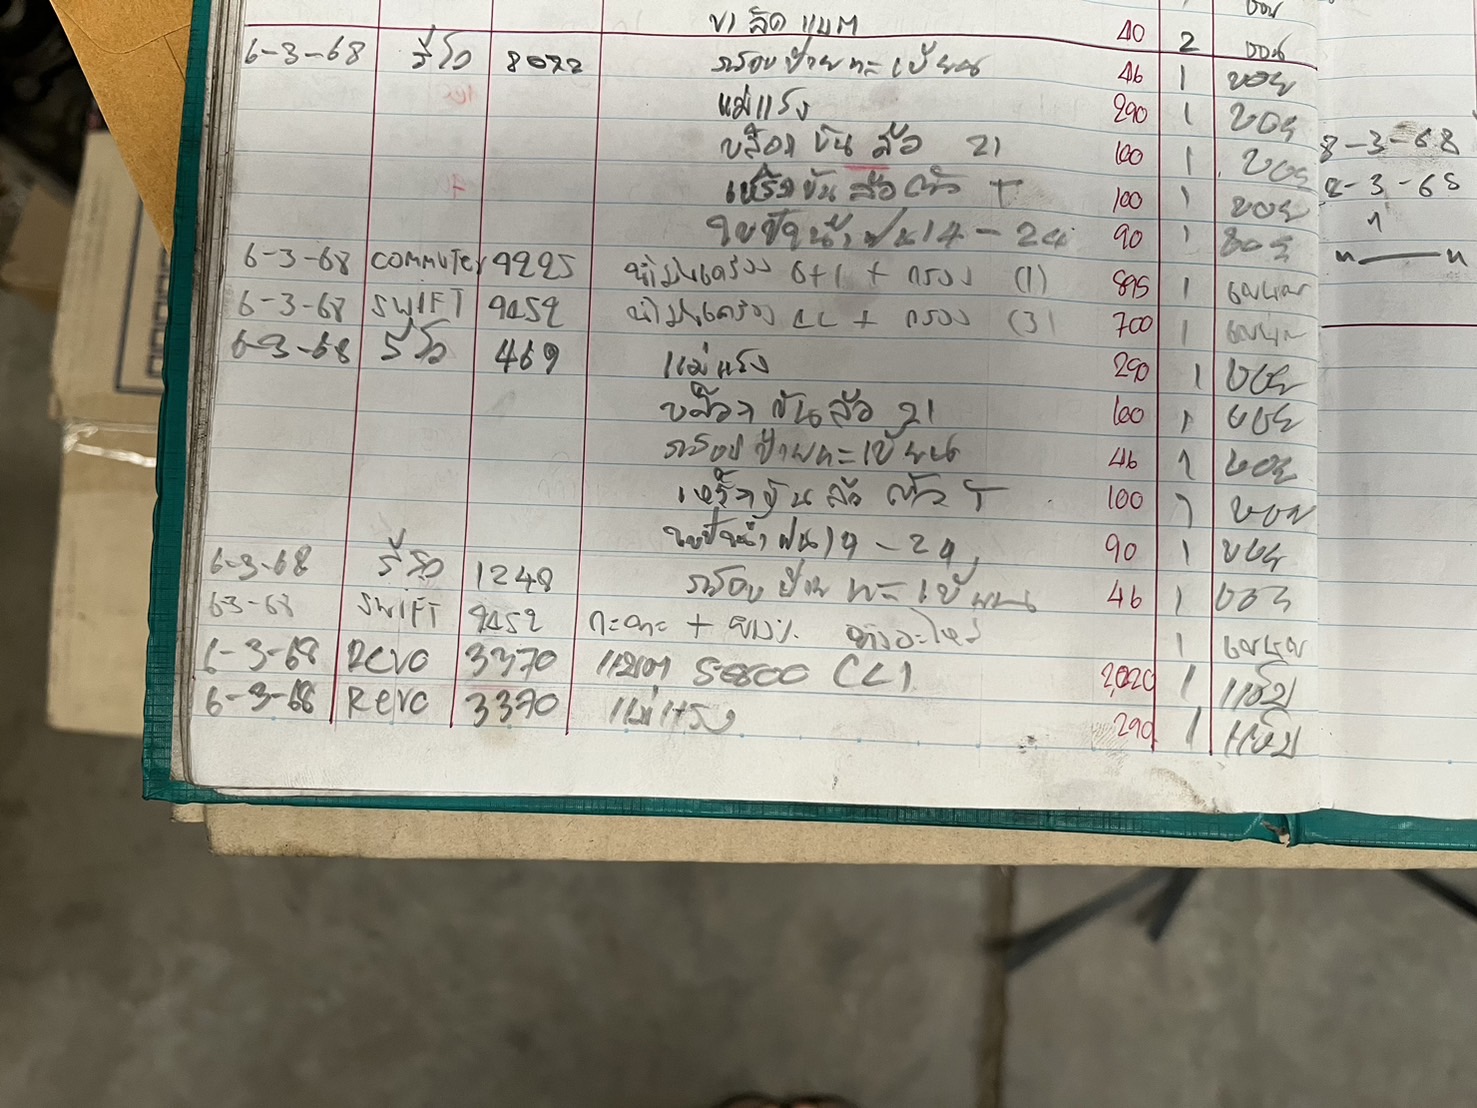 ขาลัดแบต 40 2
6-3-68 รีโว 8022 กรอบป้ายทะเบียน 46 1 บอย
แม่แรง 290 1 บอย
บล็อกขันล้อ 21 100 1 บอย
เหล็กขันล้อตัว T 100 1 บอย
ใบปัดน้ำฝน 14 - 24 90 1 บอย
6-3-68 COMMUTER 9225 น้ำมันเครื่อง 6+1 + กรอง (1) 895 1
6-3-68 SWIFT 9452 น้ำมันเครื่อง 4L + กรอง (3) 700 1
6-3-68 รีโว 469 แม่แรง 290 1 บอย
บล็อกขันล้อ 21 100 1 บอย
กรอบป้ายทะเบียน 46 1 บอย
เหล็กขันล้อ ตัว T 100 1 บอย
ใบปัดน้ำฝน 14 - 24 90 1 บอย
6-3-68 รีโว 1248 กรอบป้ายทะเบียน 46 1 บอย
63-68 SWIFT 9452 + 1
6-3-68 Revo 3370 แบต S800 (L) 2,020 1
6-3-68 Revo 3370 แม่แรง 290 1
8-3-68
8-3-68